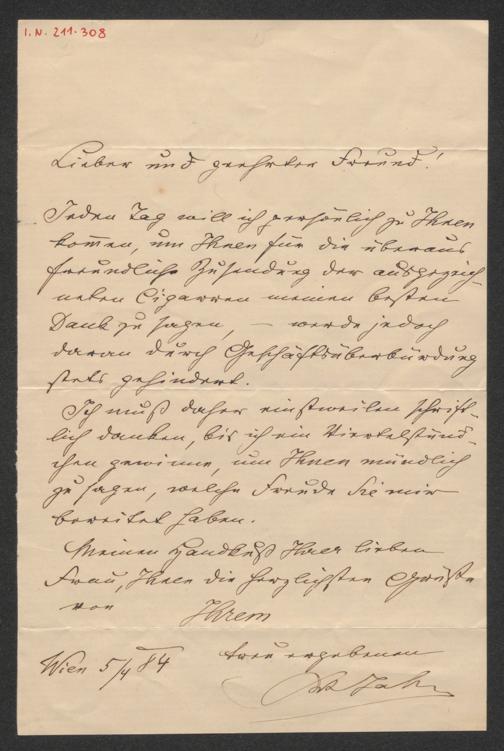 I.N. 211.308
Lieber und geehrter Freund!
Jeden Tag will ich persönlich zu Ihnen
kom̄en, um Ihnen für die überaus
freundliche Zusendung der ausgezeich-
neten Cigarren meinen besten
Dank zu sagen, — werde jedoch
daran durch Geschäftsüberbürdung
stets gehindert.
Ich muß daher einstweilen schrift-
lich danken, bis ich ein Viertelstünd-
chen gewinne, um Ihnen mündlich
zu sagen, welche Freude Sie mir
bereitet haben.
Meinen Handkuß Ihrer lieben
Frau, Ihnen die herzlichsten Grüße
von Ihrem
treu ergebenen
Wien 5/4 84
Jahn